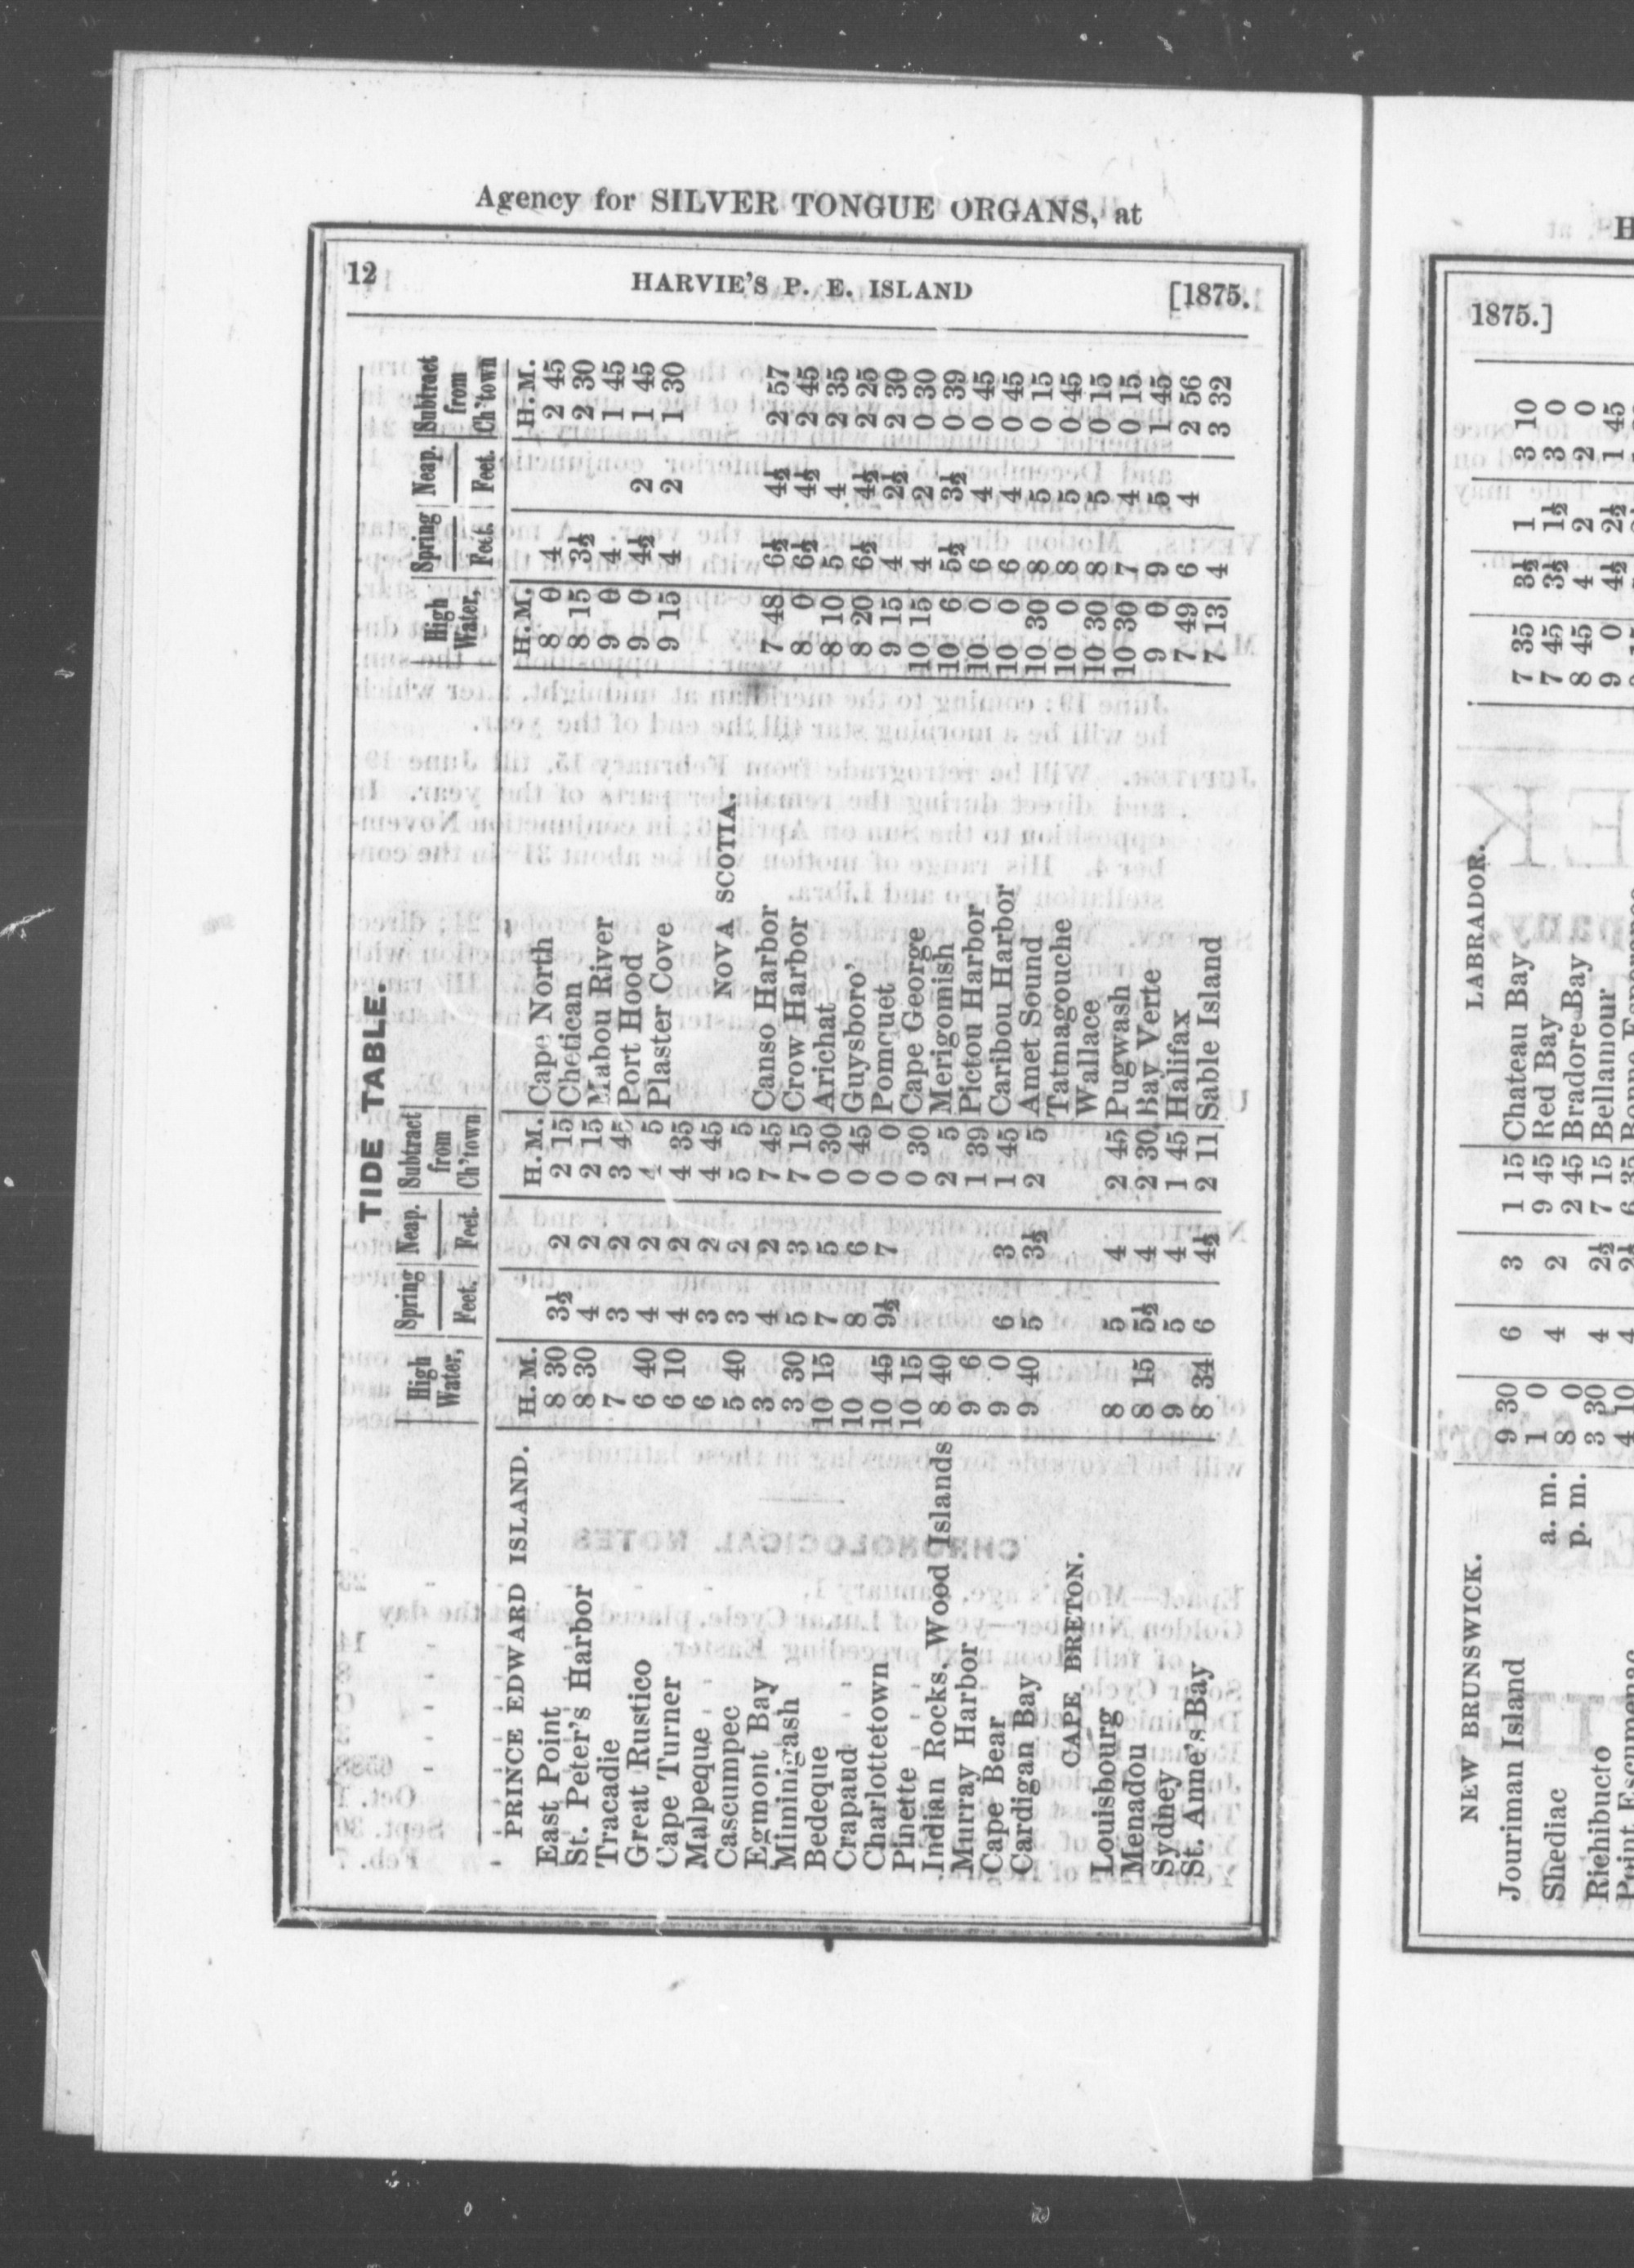 Agency for SILVER TONGUE ORGANS, at
12 HARVIE'S P. E. ISLAND [1875.
TIDE TABLE.
High Water, Spring Feet. Neap. Feet. Subtract from Ch'town
PRINCE EDWARD ISLAND. H. M. H. M.
East Point 8 30 3½ 2 2 15
St. Peter's Harbor 8 30 4 2 2 15
Tracadie 7 3 2 3 45
Great Rustico 6 40 4 2 4 5
Cape Turner 6 10 4 2 4 35
Malpeque 6 3 2 4 45
Cascumpec 5 40 3 2 5 5
Egmont Bay 3 4 2 7 45
Mininigash 3 30 5 3 7 15
Bedeque 10 15 7 5 0 30
Crapaud 10 8 6 0 45
Charlottetown 10 45 9½ 7 0 0
Pinette 10 15 0 30
Indian Rocks, Wood Islands 8 40 2 5
Murray Harbor 9 6 1 39
Cape Bear 9 0 6 3 1 45
Cardigan Bay 9 40 5 3½ 2 5
CAPE BRETON.
Louisbourg 8 5 4 2 45
Menadou 8 15 5½ 4 2 30
Sydney 9 5 4 1 45
St. Anne's Bay 8 34 6 4½ 2 11
High Water, Spring Feet. Neap. Feet. Subtract from Ch'town
H. M. H. M.
Cape North 8 0 4 2 45
Chetican 8 15 3½ 2 30
Mabou River 9 0 4 1 45
Port Hood 9 0 4½ 2 1 45
Plaster Cove 9 15 4 2 1 30
NOVA SCOTIA.
Canso Harbor 7 48 6½ 4½ 2 57
Crow Harbor 8 0 6½ 4½ 2 45
Arichat 8 10 5 4 2 35
Guysboro' 8 20 6½ 4½ 2 25
Pomquet 9 15 4 2½ 2 30
Cape George 10 15 4 2 0 30
Merigomish 10 6 5½ 3½ 0 39
Pictou Harbor 10 0 6 4 0 45
Caribou Harbor 10 0 6 4 0 45
Amet Sound 10 30 8 5 0 15
Tatmagouche 10 0 8 5 0 45
Wallace 10 30 8 5 0 15
Pugwash 10 30 7 4 0 15
Bay Verte 9 0 9 5 1 45
Halifax 7 49 6 4 2 56
Sable Island 7 13 4 3 32
H
1875.]
NEW BRUNSWICK.
Jouriman Island 9 30 6 3 1 15
Shediac a. m. 1 0 4 2 9 45
p. m. 8 0 2 45
Richibucto 3 30 4 2½ 7 15
Point Escumenac 4 10 4 2½ 6 35
LABRADOR.
Chateau Bay 7 35 3½ 1 3 10
Red Bay 7 45 3½ 1½ 3 0
Bradore Bay 8 45 4 2 2 0
Bellamour 9 0 4½ 2½ 1 45
Bonne Esperance